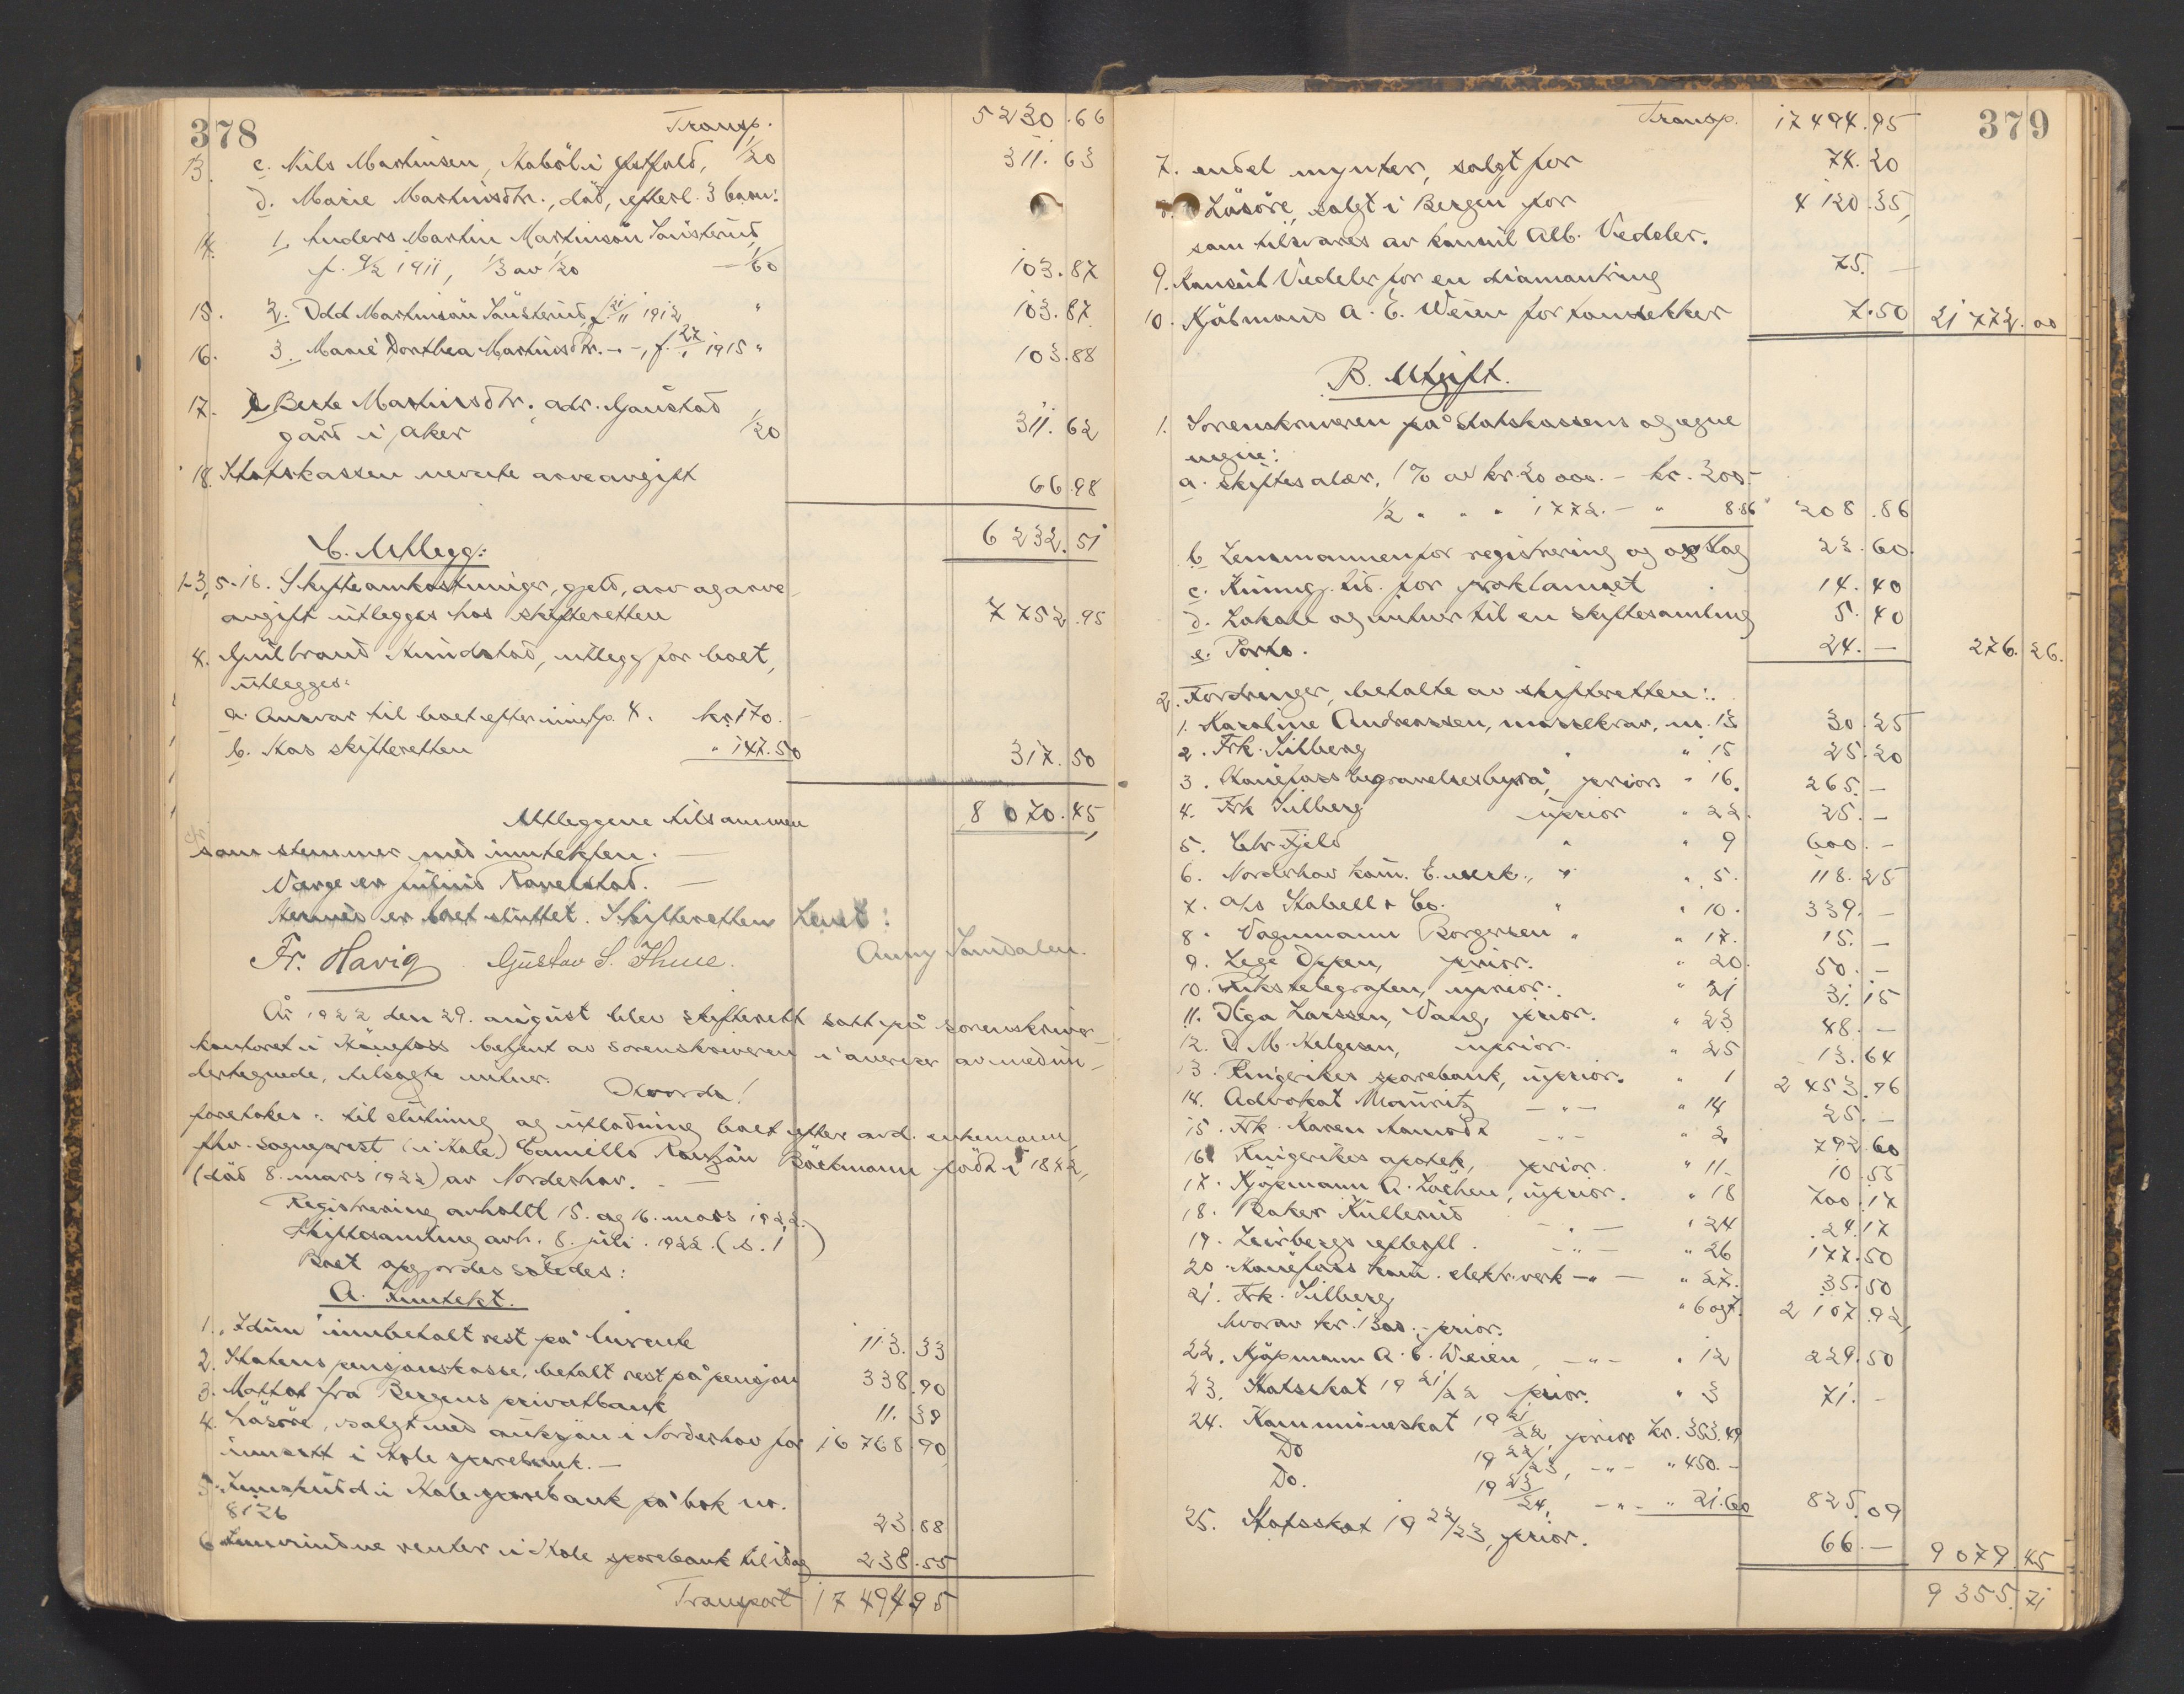 378
Transp. 5230.66
13. c. Nils Martinsen, Kaböl i Østfold, 1/20 311.63
d. Marie Martinsdtr., död, efterl. 3 barn:
14. 1. Anders Martin Martinsön
f. 9/2 1911, 1/3 av 1/20 - 1/60 103.87
15. 2. Odd Martinsön f. 21/11 1912 " 103.87
16. 3. Marie Dorthea Martinsdtr. -"-, f. 27/1 1915 " 103.88
17. e. Berte Martinsdtr. adr. Gaustad
gård i Aker 1/20 311.62
18. Statskassen nevnte arveavgift 66.98
6232.51
C. Utlegg:
1-3, 5-18. Skifteomkostninger, gjeld, arv og arve-
avgift utlegges hos skifteretten 7752.95
4. Gulbrand utlegg for boet,
utlegges:
a. Ansvar til boet efter inntp. 4. kr. 170.-
b. Hos skifteretten " 147.50 317.50
Utleggene tilsammen 8070.45,
som stemmer med inntekten. -
Verge er
Hermed er boet sluttet. Skifteretten hevet:
Fr. Havig Gustav S. Thue. Anny Sandalen.
År 1922 den 29. august blev skifterett satt på sorenskriver-
kontoret i Hönefoss betjent av sorenskriveren i nærvær av medun-
dertegnede, tilsagte vitner. Hvorda!
foretokes: til slutning og utlodning boet efter avd. enkemann
fhv. sogneprest (i Hole) Camillo født i 1842,
(död 8. mars 1922) av Norderhov. -
Registrering avholdt 15. og 16. mars 1922.
Skiftesamling avh. 8. juli 1922. (s. 1 )
Boet opgjordes således:
A. Inntekt.
1. "Idun" innbetalt rest på livrente 113.33
2. Statens pensjonskasse, betalt rest på pensjon 338.90
3. Mottat fra Bergens privatbank 11.39
4. Lösöre, solgt ved auksjon i Norderhov for 16768.90
innsatt i Hole sparebank. -
5. Innskudd i Hole sparebank på bok nr.
8126 23.88
6. Innvundne renter i Hole sparebank til idag 238.55
Transport 17494.95
379
Transp. 17494.95
7. endel mynter, solgt for 74.20
8. Lösöre, solgt i Bergen for 4120.35,
som tilsvares av konsul Alb. Viedeler.
9. Konsul Viedeler for en diamantring 75.-
10. Kjöbmand A. E. Weien for tomsekker 7.50 21772.00
B. Utgift.
1. Sorenskriveren på statskassens og egne
vegne:
a. Skiftesalær, 1% av kr. 20000.- kr. 200.-
1/2 " " " 1772.- " 8.86 208.86
b. Lensmannen for registrering og opslag 23.60.
c. Kunngj. tid. for proklamaet 14.40
d. Lokale og vitner til en skiftesamling 5.40
e. Porto. 24.- 276.26.
2. Fordringer, betalte av skifteretten:
1. Karoline Andreassen, massekrav, nr. 13 30.25
2. Frk. Silberg " " 15 25.20
3. Hönefoss begravelsesbyrå, prior. " 16. 265.-
4. Frk Silberg uprior " 22. 25.-
5. Chr. Fjeld " " 9 600.-
6. Norderhov kom. E. verk., " " 5. 118.25
7. A/s Kabell & Co. " " 10. 339.-
8. Vognmann Borgersen " " 17. 15.-
9. Lege Oppen, prior. " 20. 50.-
10. Rikstelegrafen, uprior. " 21 31.15
11. Olga Larssen, Vang, prior. " 23 48.-
12. O. M. Helgesen, uprior. " 25 13.64
13. Ringerikes sparebank, uprior. " 1 2453.96
14. Advokat Mauritz -"- " 14 25.-
15. Frk. Karen -"- " 2 792.60
16. Ringerikes apotek, prior. " 11. 10.55
17. Kjöpmann A. Löchen, uprior. " 18 700.17
18. Baker Kullerud -"- " 24 24.17
19. Leirbergs efterfl. -"- " 26 177.50
20. Hönefoss kom. elektr.verk -"- " 27. 35.50
21. Frk. Silberg " 6 og 7. 2107.92,
hvorav kr. 1300.-, prior.
22. Kjöpmann A. E. Weien, -"- " 12 229.50
23. Statsskat 1921/22 prior. " 3 71.-
24. Kommuneskat 1921/22, prior kr. 353.49
Do 1922/23, -"- " 450.-
Do. 1923/24, -"- " 21.60 825.09
25. Statsskat 1922/23, prior. 66.- 9079.45
9355.71